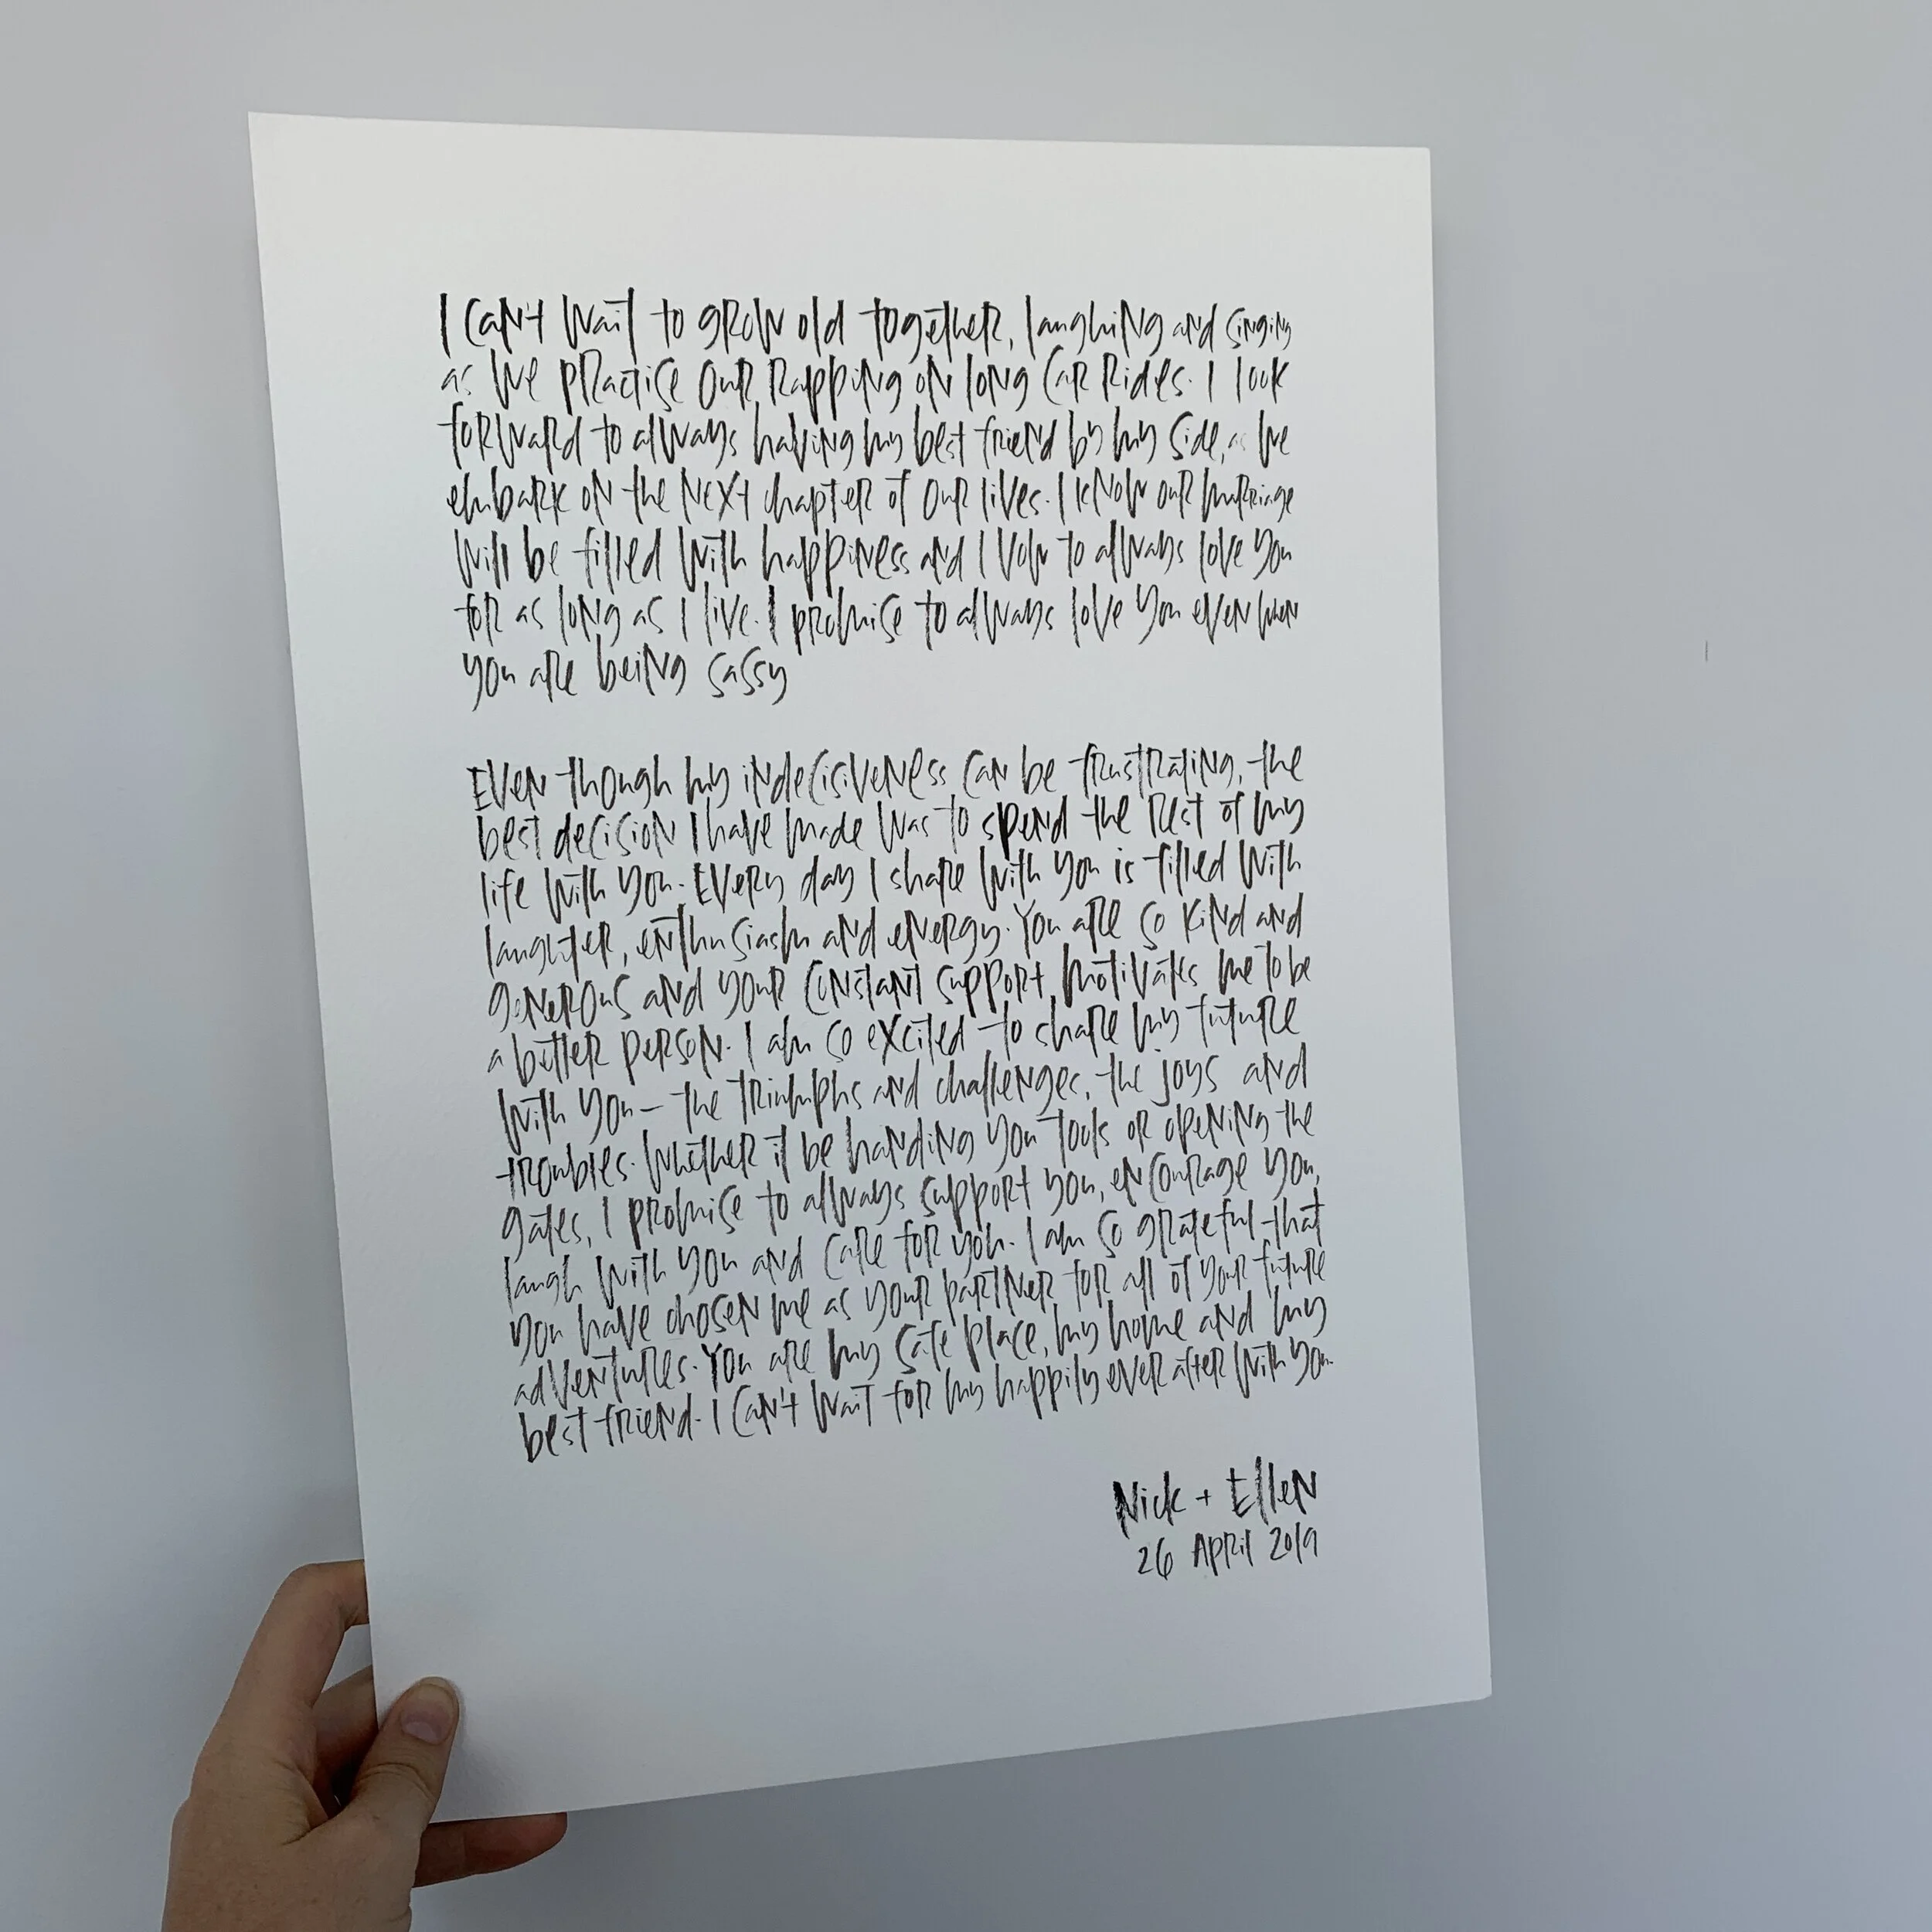 I can't wait to grow old together, laughing and singing
as we practise our rapping on long car rides. I look
forward to always having my best friend by my side, as we
embark on the next chapter of our lives. I know our marriage
will be filled with happiness and I vow to always love you
for as long as I live. I promise to always love you even when
you are being sassy
Even though my indecisiveness can be frustrating, the
best decision I have made was to spend the rest of my
life with you. Every day I share with you is filled with
laughter, enthusiasm and energy. You are so kind and
generous and your constant support motivates me to be
a better person. I am so excited to share my future
with you – the triumphs and challenges, the joys and
troubles. Whether it be handing you tools or opening the
gates, I promise to always support you, encourage you,
laugh with you and care for you. I am so grateful that
you have chosen me as your partner for all of your future
adventures. You are my safe place, my home and my
best friend. I can't wait for my happily ever after with you.
Nick + Ellen
26 April 2019